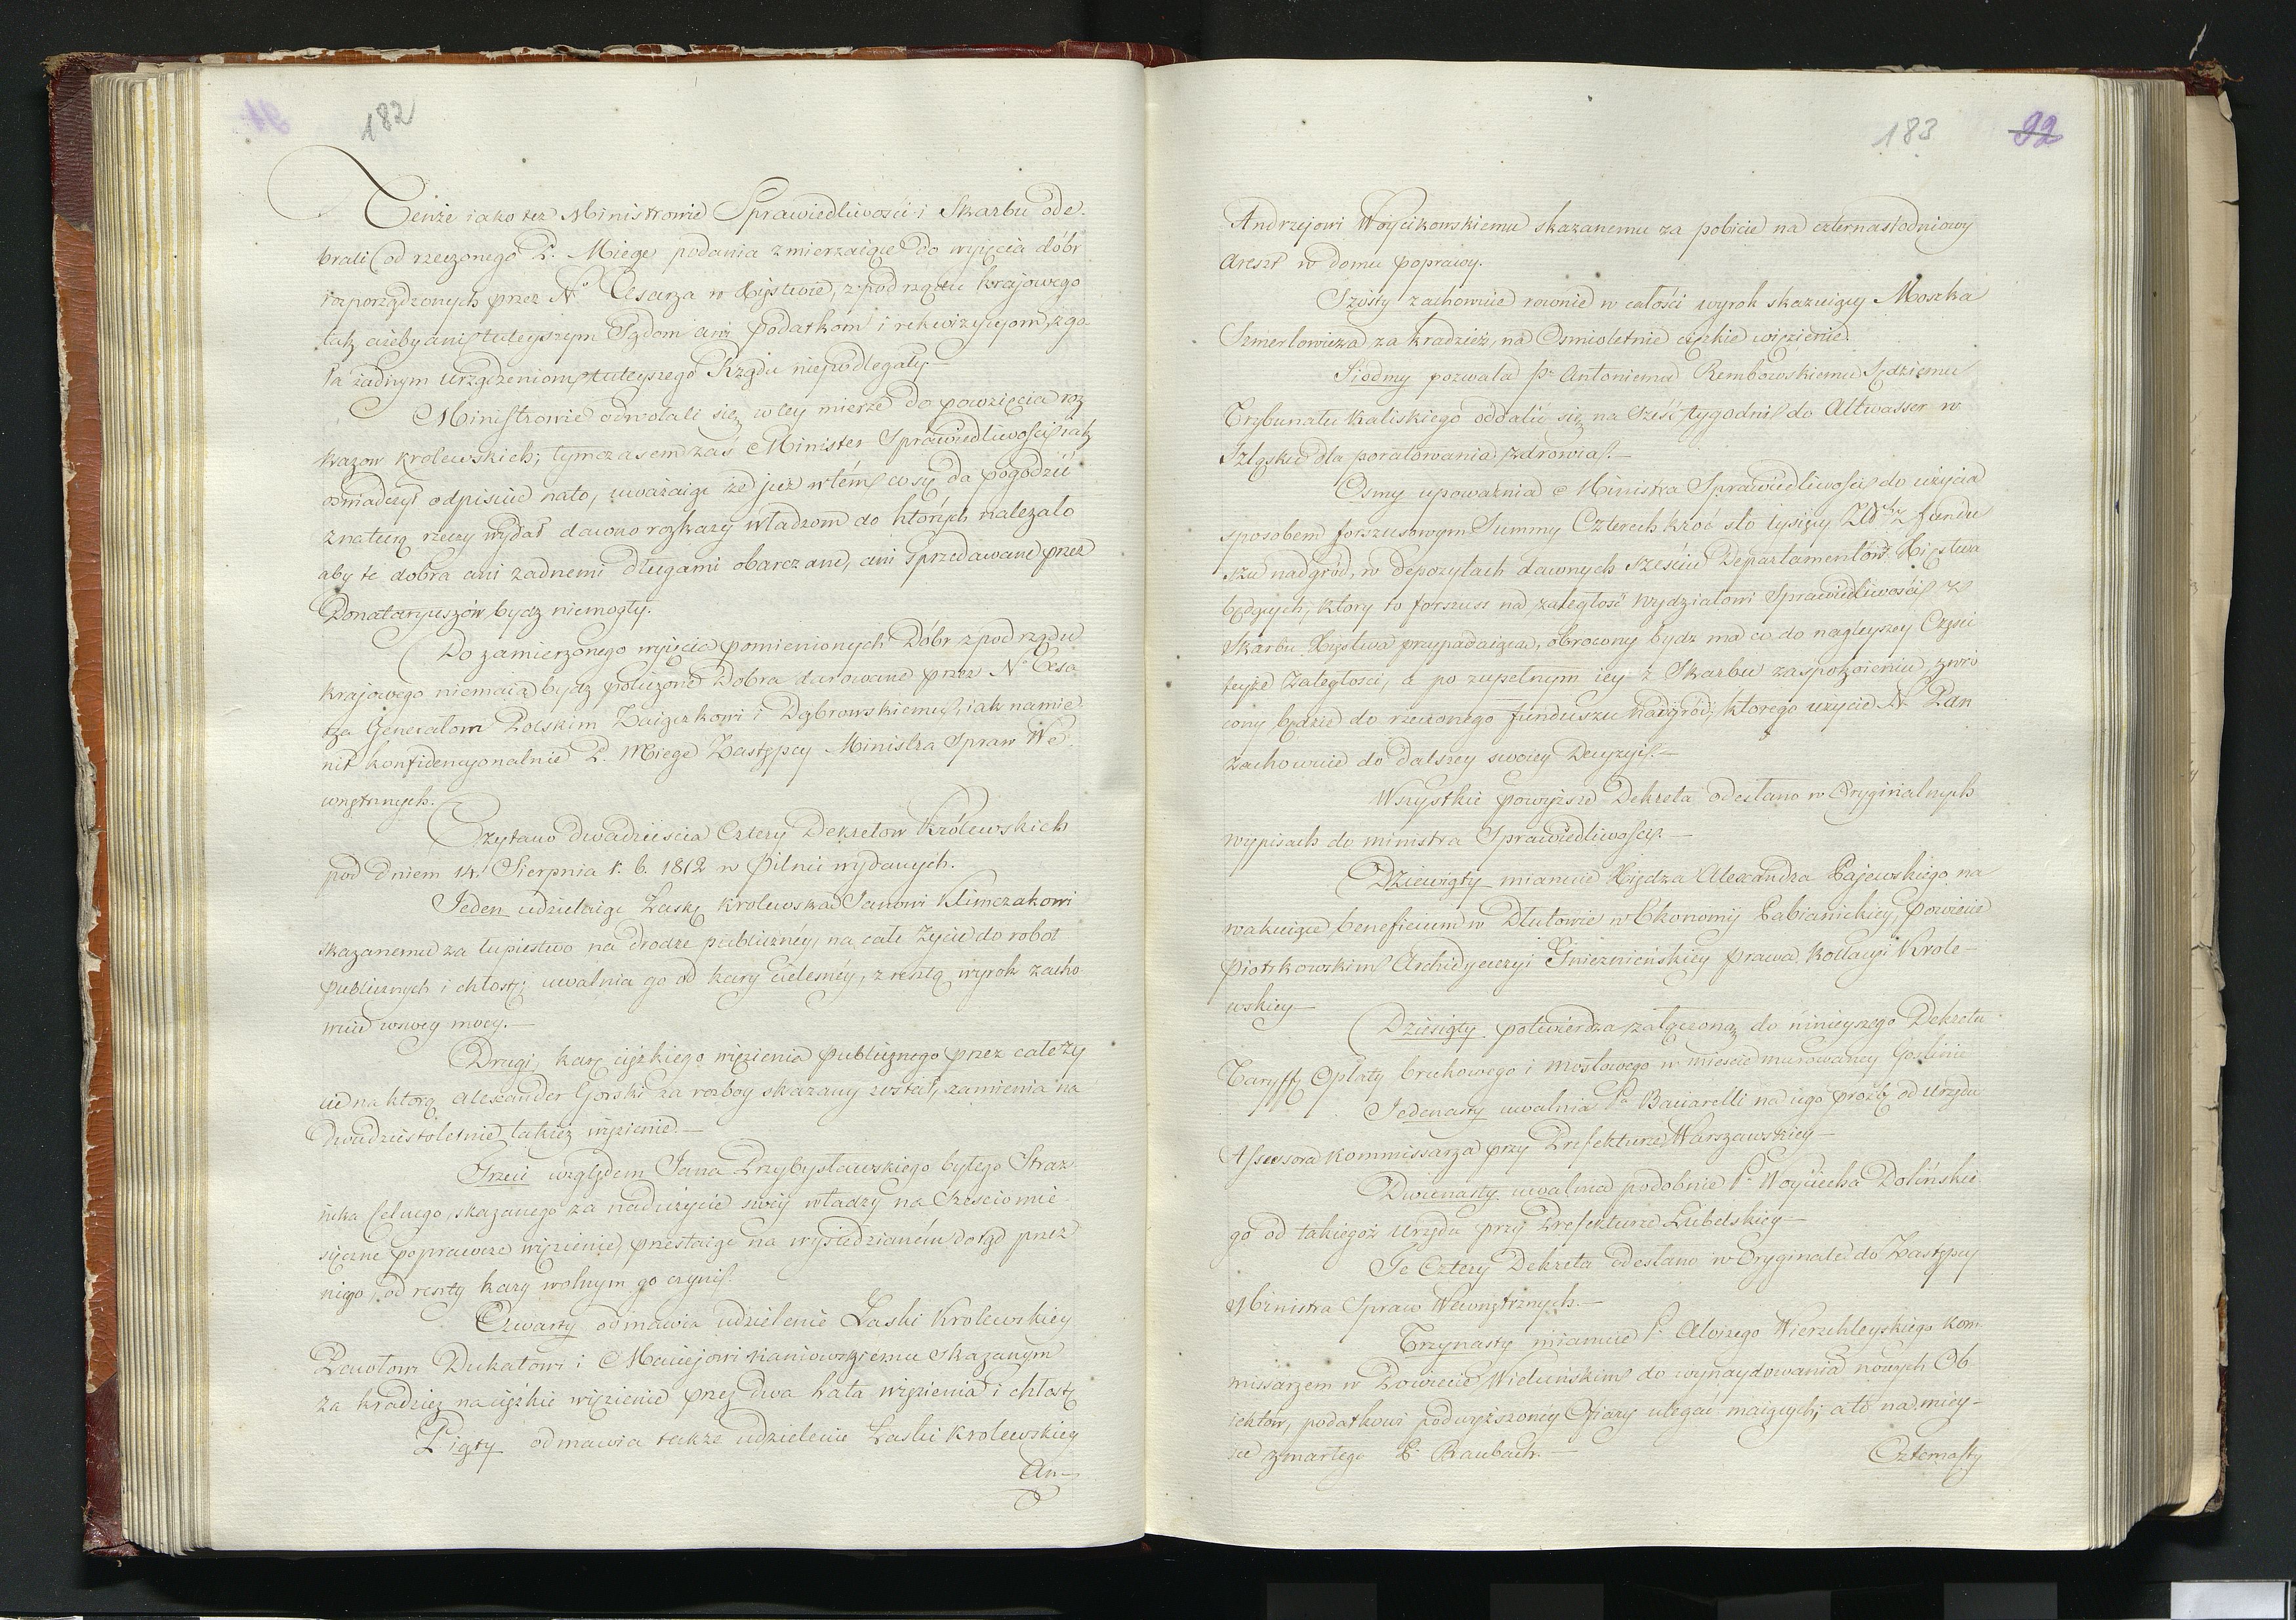 182
Tenże iako też Ministrowie Sprawiedliwości i Skarbu ode-
brali od rzeczonego P. Miege podania zmierzaiące do wyięcia dóbr
rozporządzonych przez N° Cesarza w Xięstwie, z pod rządu krajowego
tak ażeby ani tuteyszym Sądom ani podatkom i rekwizycyom, zgo-
ła żadnym urządzeniom tuteyszego Rządu niepodlegały
Ministrowie odwołali się w tey mierze do powzięcia roz
kazow krolewskich; tymczasem zaś Minister Sprawiedliwości iak
oświadczył odpisuie na to, uważaiąc że już w tém co się da pogodzić
z naturą rzeczy wydał dawno rozkazy władzom do których należało
aby te dobra ani żadnemi długami obarczane, ani sprzedawane przez
Donataryuszów bydź niemogły.
Do zamierzonego wyięcia pomienionych Dóbr z pod rządu
krajowego niemaią bydź policzone Dobra darowane przez N° Cesa
rza Generałom Polskim Zaiączkowi i Dąbrowskiemu, iak namie-
nił konfidencyonalnie P. Miege Zastępcy Ministra Spraw We
wnętrznych.
Czytano dwadzieścia Cztery Dekretow Królewskich
pod dniem 14. Sierpnia r. b. 1812 w Pilnic wydanych.
Jeden udzielaiąc Łaskę krolewską Janowi Klimczakowi
skazanemu za łupiestwo na drodze publicznéy, na całe życie do robot
publicznych i chłosty; uwalnia go od kary cielesnéy, z resztą wyrok zacho
wuie w swey mocy.—
Drugi, karę ciężkiego więzienia publicznego przez całe ży
cie na którą Alexander Gorski za rozboy skazany został, zamienia na
Dwudziestoletnie takież więzienie.—
Trzeci względem Jana Przybysławskiego byłego Straż
nika celnego, skazanego za nadużycie swéy władzy na sześciomie
sięczne poprawcze więzienie, przestaiąc na wysiedzianém dotąd przez
niego, od reszty kary wolnym go czyni.
Czwarty odmawia udzielenie Łaski Krolewskiey
Pawłowi Dukatowi i Maciejowi Kaniowskiemu skazanym
za kradzież na ciężkie więzienie przez dwa Lata więzienia i chłostę
Piąty odmawia także udzielenie Łaski Krolewskiey
An-
183 92
Andrzejowi Woycikowskiemu skazanemu za pobicie na czternastodniowy
Areszt w domu poprawy.
Szósty zachowuie rownie w całości wyrok skazuiący Moszka
Szmerlowicza za kradzież, na Osmioletnie ciężkie więzienie.
Siodmy pozwala P. Antoniemu Rembowskiemu Sędziemu
Trybunału Kaliskiego oddalić się na sześć tygodni do Altwasser w
Szląsku dla poratowania zdrowia.—
Osmy upoważnia Ministra Sprawiedliwości do użycia
sposobem forszusowym Summy Czterech kroć sto tysięcy Złch z fundu
szu nadgród, w depozytach dawnych sześciu Departamentów Xięstwa
będących, ktory to forszus na zaległość Wydziałowi Sprawiedliwości z
Skarbu Xięstwa przypadaiącą, obrocony bydz ma co do nagleyszey Części
teyże zaległosci, a po zupełnym iey z Skarbu zaspokoieniu, zwró
cony będzie do rzeczonego funduszu nadgród, ktorego użycie N. Pan
zachowuie do dalszey swoiey Decyzyi.—
Wszystkie powyższe Dekreta odesłano w Oryginalnych
wypisach do ministra Sprawiedliwości.—
Dziewiąty mianuie Xiędza Alexandra Pajewskiego na
wakuiące beneficium w Dłutowie w Ekonomij Pabianickiey, powiecie
Piotrkowskim Archidyecezyi Gnieznieńskiey prawa Kollacyi Krole-
wskiey—
Dziesiąty potwierdza załączoną do ninieyszego Dekretu
Taryffę Opłaty brukowego i mostowego w mieście murowaney Goslinie
Jedenasty uwalnia Pa Bacciarelli na iego prożbę od Urzędu
Assessora kommissarza przy Prefekturze Warszawskiey—
Dwunasty uwalnia podobnie P. Woyciecha Dolińskie
go od takiegoż urzędu przy Prefekturze Lubelskiey—
Te Cztery Dekreta odesłano w Oryginale do Zastępcy
Ministra Spraw Wewnętrznych.—
Trzynasty mianuie P. Aloizego Wierzchleyskiego kom
missarzem w Powiecie Wieluńskim do wynaydowania nowych Ob
iektow, podatkowi podwyższonéy Ofiary ulegać maiących; a to na miey-
sce zmarłego P. Braubach.—
Czternasty